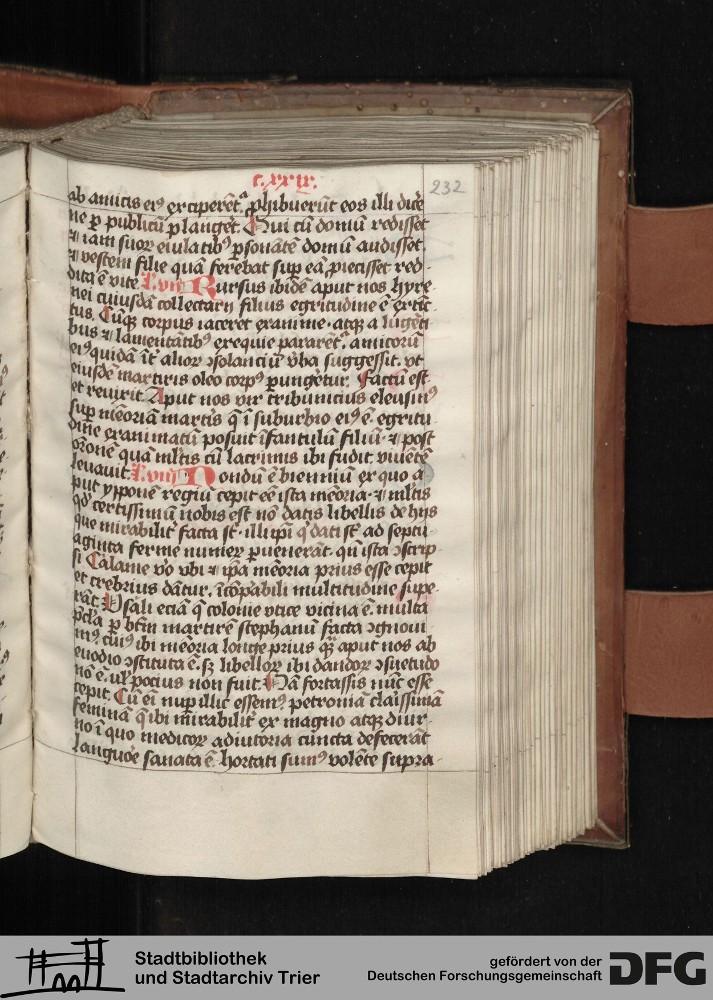 c.xxix.
232
ab amicis eiꝰ exciperet᷑. ꝓhibuerūt eos illi dice
ne ꝑ publicū plangēt. Qui cū domū redisset
⁊ iam suoꝝ eiulatibꝰ ꝑsonātē domū audisset.
⁊ vestem filie quā ferebat suꝑ eā ꝓiecisset red-
dita ē vite. Rursus ibidē aput nos hyre-
nei cuiusdā collectarij filius egritudine ē extīc
tus. Cūqꝫ corpus iaceret exanime. atqꝫ a lugētī
bus ⁊ lamentātibꝰ exequie pararēt᷑. amicorū
eiꝰ quidā īt᷑ alioꝝ ꝯsolanciū v̄ba suggessit. vt
eiusdē martiris oleo corpꝰ ꝑunget᷑ur. Factū est
et reuixit. Aput nos vir tribunicius eleusinꝰ
suꝑ mēoriā martīs q̄ ī suburbio eiꝰ ē. egritu
dine exanimatū posuit īfantulū filiū. ⁊ post
oronē quā ml̄tis cū lacrimis ibi fudit viuētē
leuauit. Nondū ē bienniū ex quo a
put yppone regiū cepit eē ista mēoria. ⁊ ml̄tis
qd̓ certissimū nobis est nō datis libellis de hijs
que mirabilit᷑ facta st̄. illi ip̄i q̓ dati st̄ ad septu-
aginta ferme numeꝝ ꝑuenerāt. qn̄ ista ꝯscrip
si. Calame vo vbi ⁊ ip̄a mēoria prius esse cepit
et crebrius dātur. īcōꝑabili multitudine supe-
rāt. Vsali eciā q̄ colonie vtice vicina ē. multa
p̄cl̄a ꝑ btm̄ martirē stephanū facta ꝯgnoui-
mꝰ cuiꝰ ibi mēoria longe prius qꝫ aput nos ab
euodio ꝯstituta ē. sꝫ libelloꝝ ibi dandoꝝ ꝯsuetudo
nō ē. ul̓ pocius non fuit. Nā fortassis nūc esse
cepit. Cū ei nuꝑ illic essemꝰ petroniā claissimā
feminā q̄ ibi mirabilit᷑ ex magno atqꝫ diur-
no ī quo medicoꝝ adiutoria cuncta defecerāt
languōe sanata ē. hortati sumꝰ volēte supra-
Stadtbibliothek
und Stadtarchiv Trier
gefördert von der
Deutschen Forschungsgemeinschaft
DFG